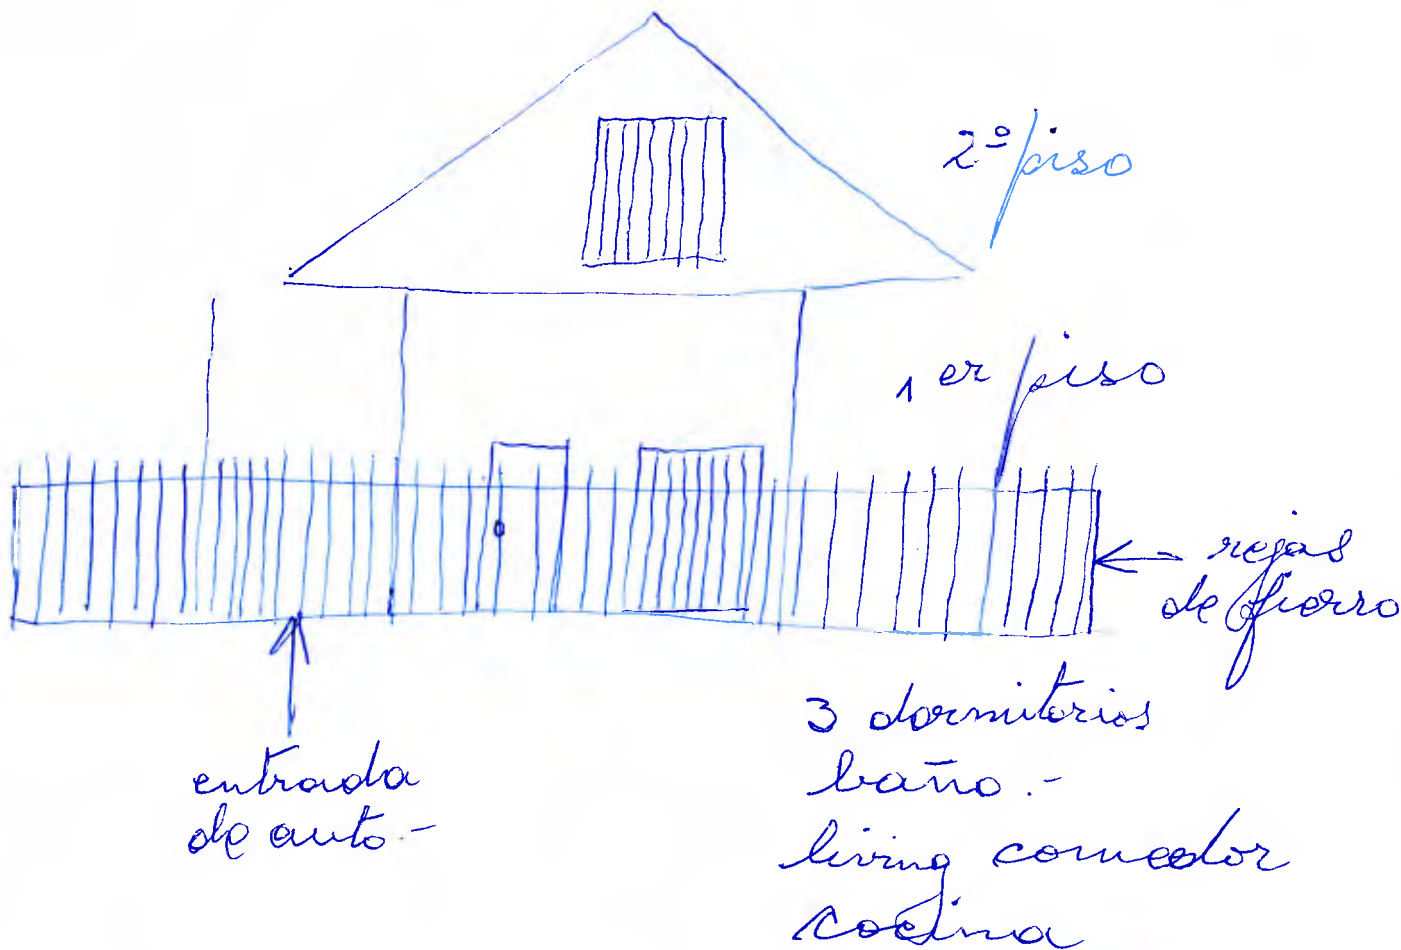 2º piso
1er piso
rejas
de fierro
entrada
de auto.-
3 dormitorios
baño.-
living comedor
cocina